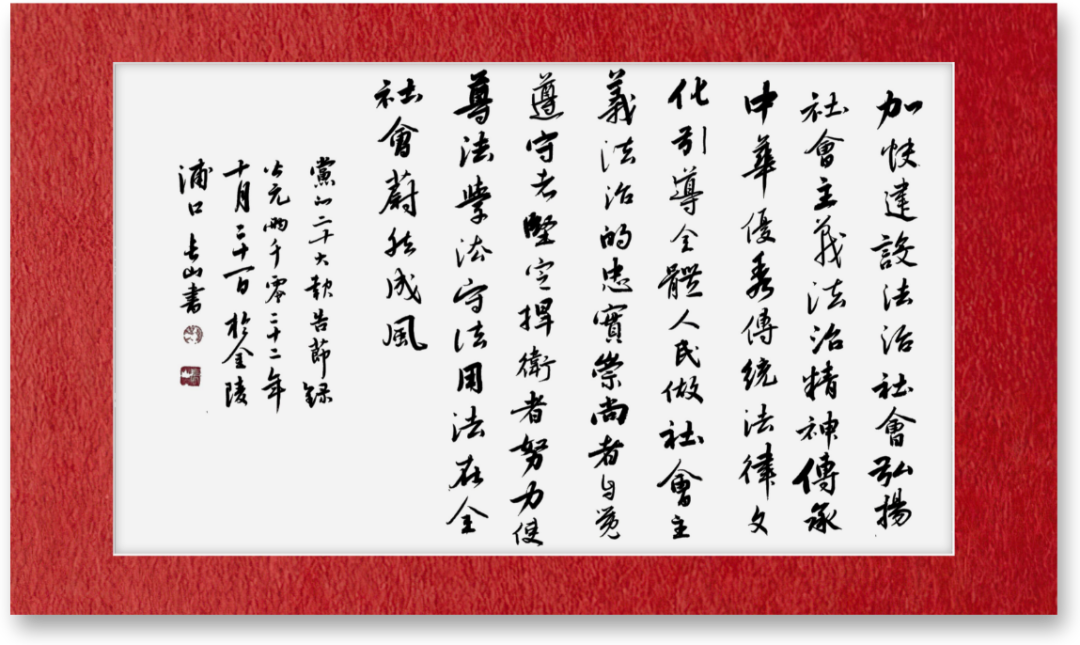 加快建設法治社會弘揚
社會主義法治精神傳承
中華優秀傳統法律文
化引導全體人民做社會主
義法治的忠實崇尚者自覺
遵守者堅定捍衛者努力使
尊法學法守法用法在全
社會蔚然成風
黨的二十大報告節錄
公元兩千零二十二年
十月二十一日於金陵
浦口長山書